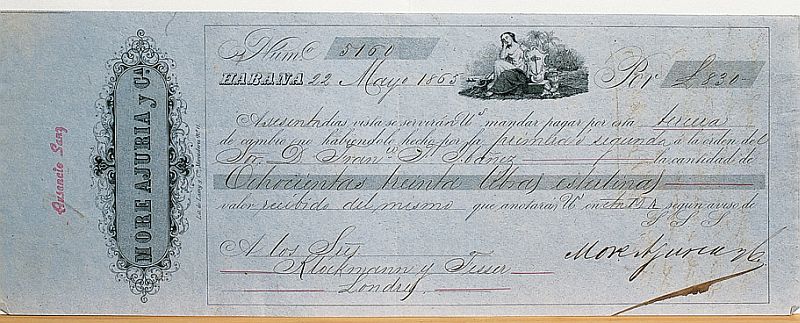 MORE AJURIA y Cª
Núm.º 5160
HABANA 22 Mayo 1865 Por £830-
A sesenta dias vista se servirán Uˢ mandar pagar por esta tercera
de cambio (no habiéndolo hecho por la primera ó segunda) a la órden del
Sor. D. Franᶜᵒ F. Ibáñez la cantidad de
Ochocientas treinta libras esterlinas
valor recibido del mismo que anotarán Uˢ en cta segun aviso de
S. S. S.
A los Sres
Klockmann y
Londres
More Ajuria y Cª